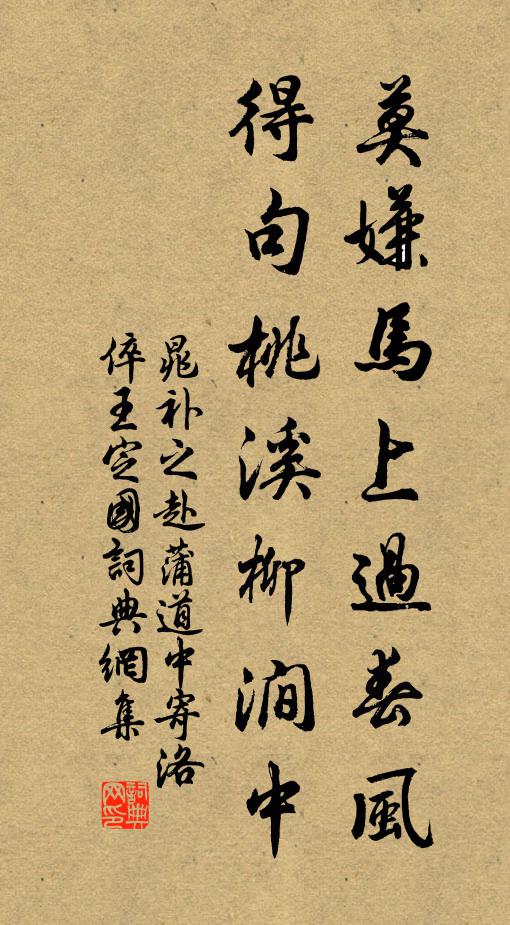 莫嫌馬上過春風
得句桃溪柳澗中
晁补之赴蒲道中寄洛
倅王定國詞典網集
詞典网印